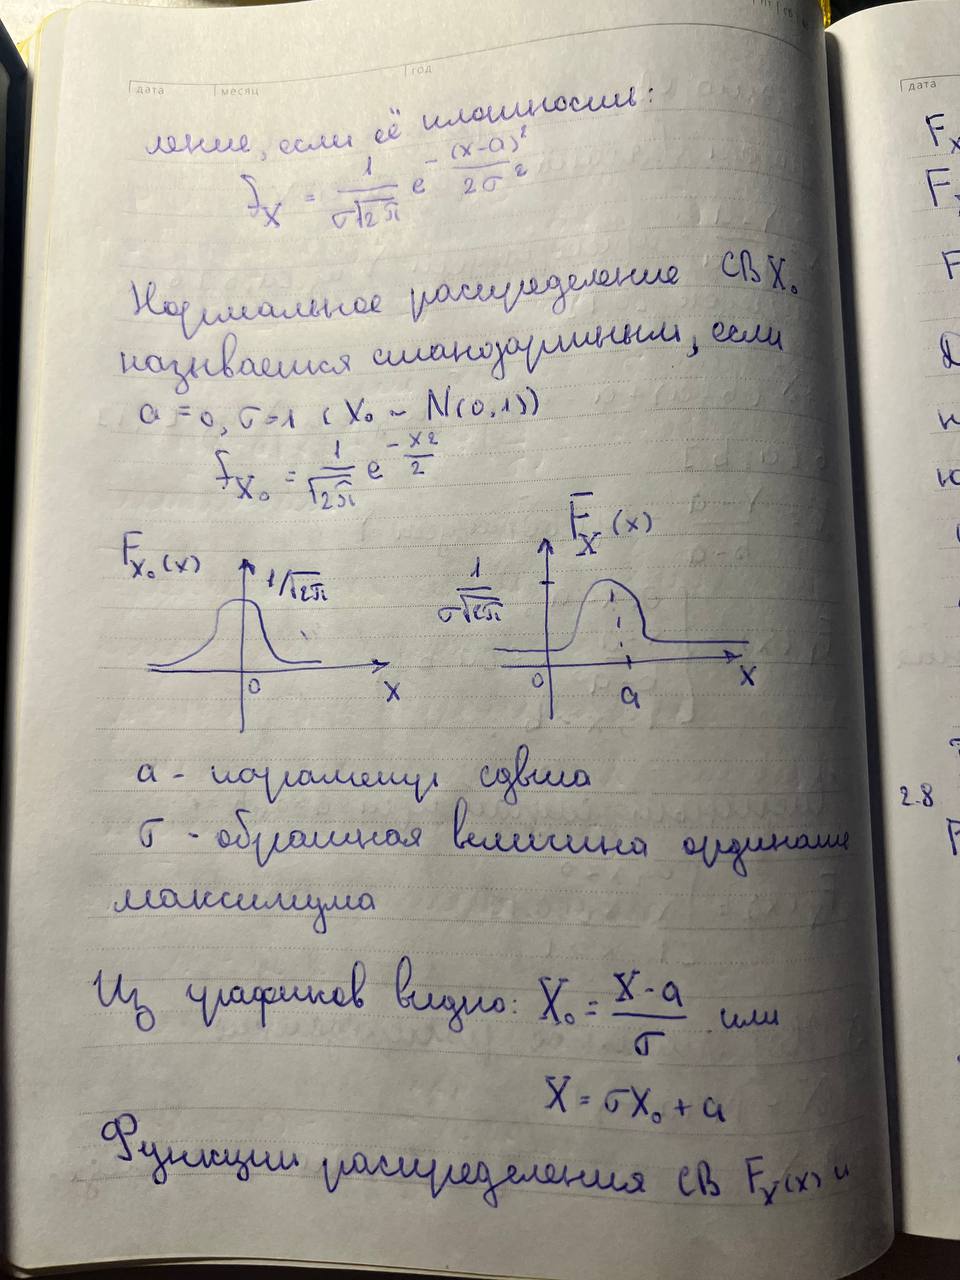 дата месяц год
ление, если её плотность:
f_X = 1/(σ√2π) e^(-(x-a)²/(2σ²))
Нормальное распределение СВ X₀
называется стандартным, если
a=0, σ=1 (X₀ ~ N(0,1))
f_X₀ = 1/√2π e^(-x²/2)
F_X₀(x) 1/√2π
0 x
F_X(x)
1/(σ√2π)
0 a x
a - параметр сдвига
σ - обратная величина ординате
максимума
Из графиков видно: X₀ = (X-a)/σ или
X = σX₀ + a
Функции распределения СВ F_X(x) и
дата
F_X
F
F
2.8
F